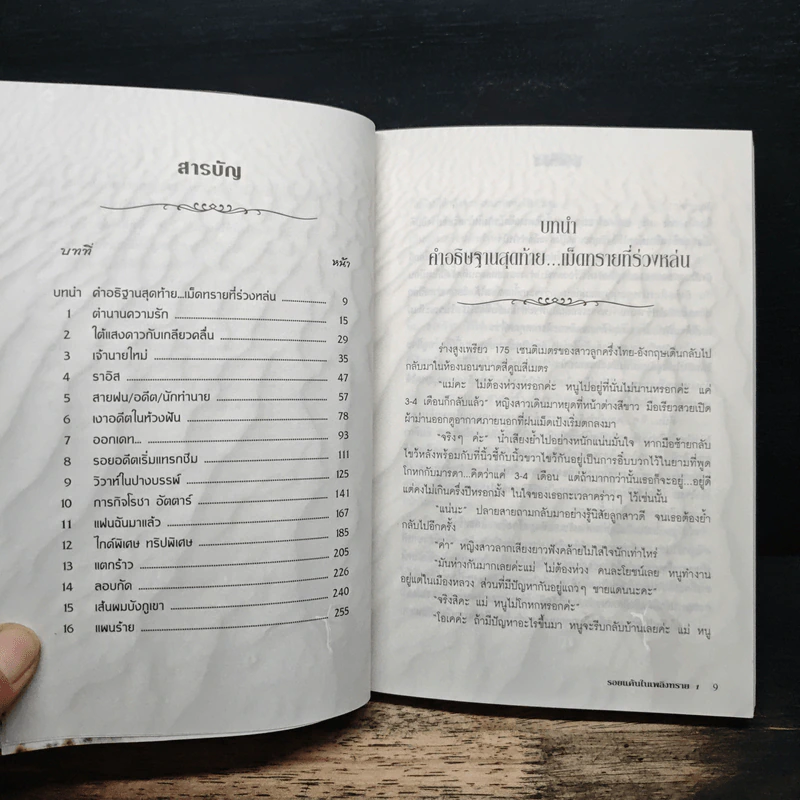 สารบัญ
บทที่
หน้า
บทนำ คำอธิฐานสุดท้าย...เม็ดทรายที่ร่วงหล่น 9
1 ตำนานความรัก 15
2 ใต้แสงดาวกับเกลียวคลื่น 29
3 เจ้านายใหม่ 35
4 ราอิส 47
5 สายฝน/อดีต/นักทำนาย 57
6 เงาอดีตในห้วงฝัน 78
7 ออกเดท... 93
8 รอยอดีตเริ่มแทรกซึม 111
9 วิวาห์ในปางบรรพ์ 125
10 ภารกิจโรชา อัตตาร์ 141
11 แฟนฉันมาแล้ว 167
12 ไกด์พิเศษ ทริปพิเศษ 185
13 แตกร้าว 205
14 ลอบกัด 226
15 เส้นผมบังภูเขา 240
16 แผนร้าย 255
บทนำ
คำอธิษฐานสุดท้าย...เม็ดทรายที่ร่วงหล่น
ร่างสูงเพรียว 175 เซนติเมตรของสาวลูกครึ่งไทย-อังกฤษเดินกลับไป
กลับมาในห้องนอนขนาดสี่คูณสี่เมตร
"แม่คะ ไม่ต้องห่วงหรอกค่ะ หนูไปอยู่ที่นั่นไม่นานหรอกค่ะ แค่
3-4 เดือนก็กลับแล้ว" หญิงสาวเดินมาหยุดที่หน้าต่างสีขาว มือเรียวสวยเปิด
ผ้าม่านออกดูอากาศภายนอกที่ฝนเม็ดเป้งเริ่มตกลงมา
"จริงๆ ค่ะ" น้ำเสียงย้ำไปอย่างหนักแน่นมั่นใจ หากมือซ้ายกลับ
ไขว้หลังพร้อมกับที่นิ้วชี้กับนิ้วกลางไขว้กันอยู่เป็นการอิ๊บบวกไว้ในยามที่พูด
โกหกกับมารดา...คิดว่าแค่ 3-4 เดือน แต่ถ้ามากกว่านั้นเธอก็จะอยู่...อยู่ดี
แต่คงไม่เกินครึ่งปีหรอกมั้ง ในใจของเธอกะเวลาคร่าวๆ ไว้เช่นนั้น
"แน่นะ" ปลายสายถามกลับมาอย่างรู้นิสัยลูกสาวดี จนเธอต้องย้ำ
กลับไปอีกครั้ง
"ค่า" หญิงสาวลากเสียงยาวฟังคล้ายไม่ใส่ใจนักเท่าไหร่
"มันห่างกันมากเลยค่ะแม่ ไม่ต้องห่วง คนละโยชน์เลย หนูทำงาน
อยู่แต่ในเมืองหลวง ส่วนที่มีปัญหากันอยู่แถวๆ ชายแดนนะคะ"
"จริงสิคะ แม่ หนูไม่โกหกหรอกค่ะ"
"โอเคค่ะ ถ้ามีปัญหาอะไรขึ้นมา หนูจะรีบกลับบ้านเลยค่ะ แม่ หนู
รอยแค้นในเพลิงทราย 1 9